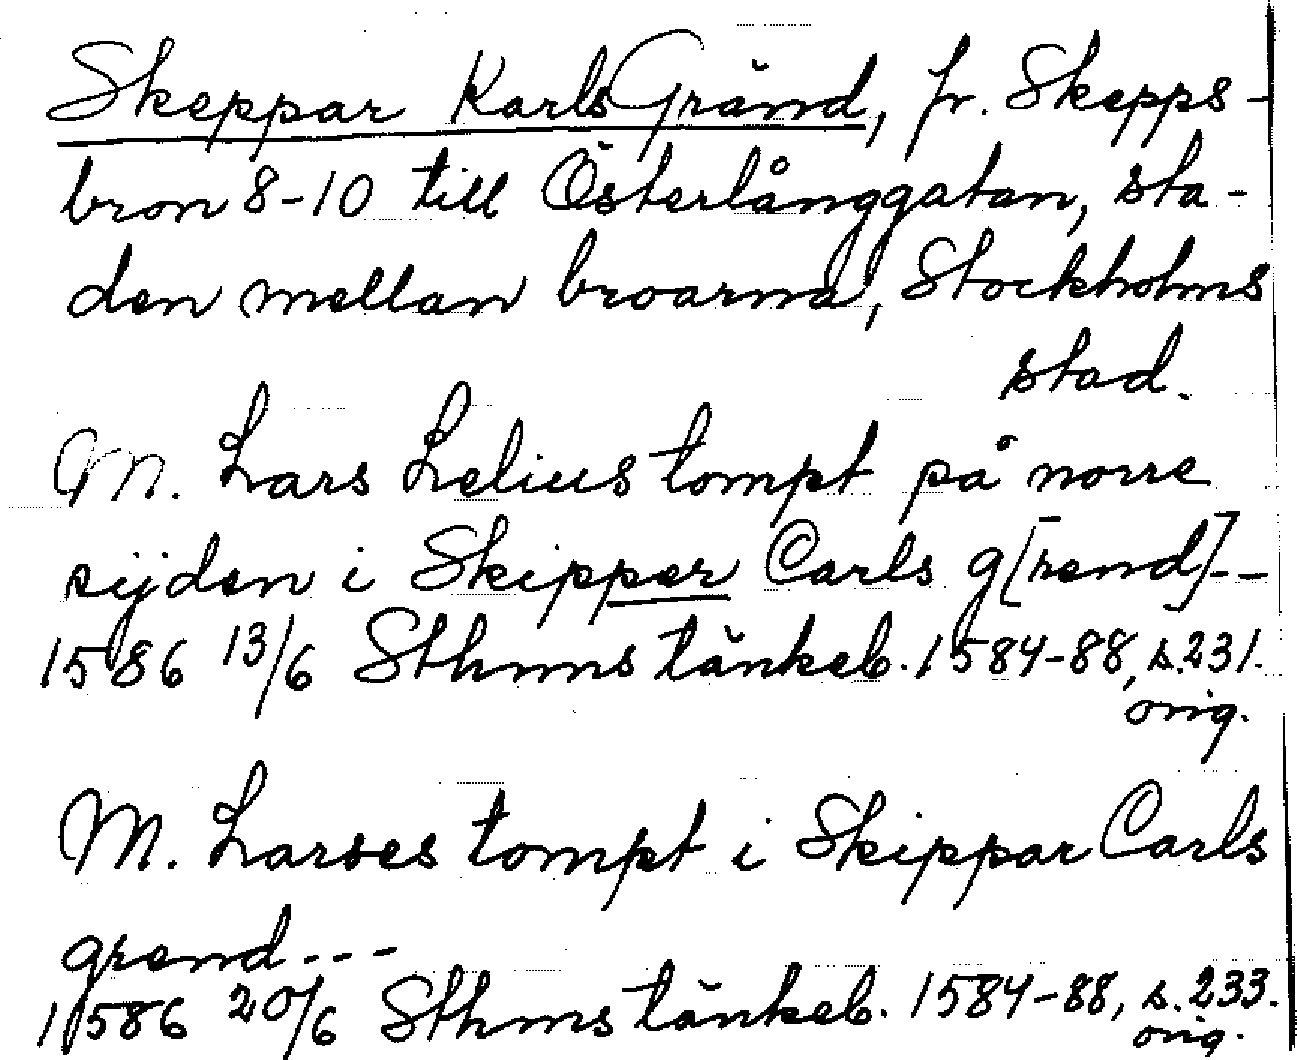 Skeppar Karls Gränd, fr. Skepps-
bron 8-10 till Österlånggatan, sta-
den mellan broarna, Stockholms
stad.
M. Lars Lelius tompt på norre
sijden i Skipper Carls g[rend]--
1586 13/6 Sthms tänkeb. 1584-88, s. 231.
orig.
M. Larses tompt i Skippar Carls
grend---
1586 20/6 Sthms tänkeb. 1584-88, s. 233.
orig.